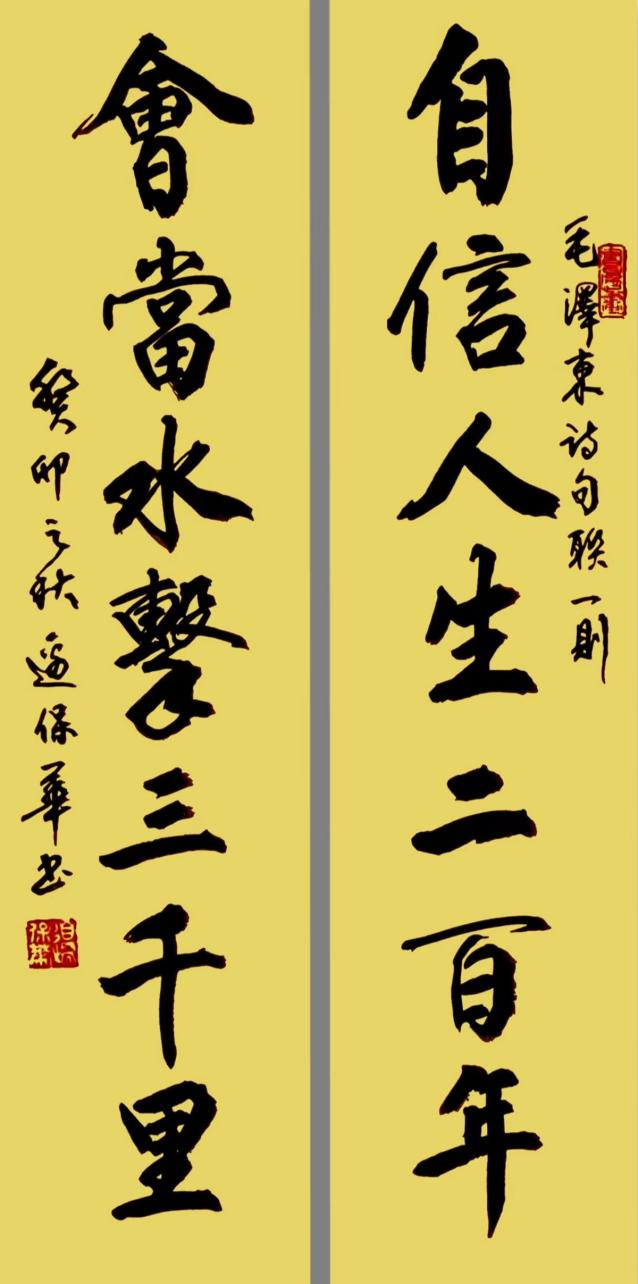 毛澤東诗句聯一則
自信人生二百年
會當水擊三千里
癸卯之秋邊保華书